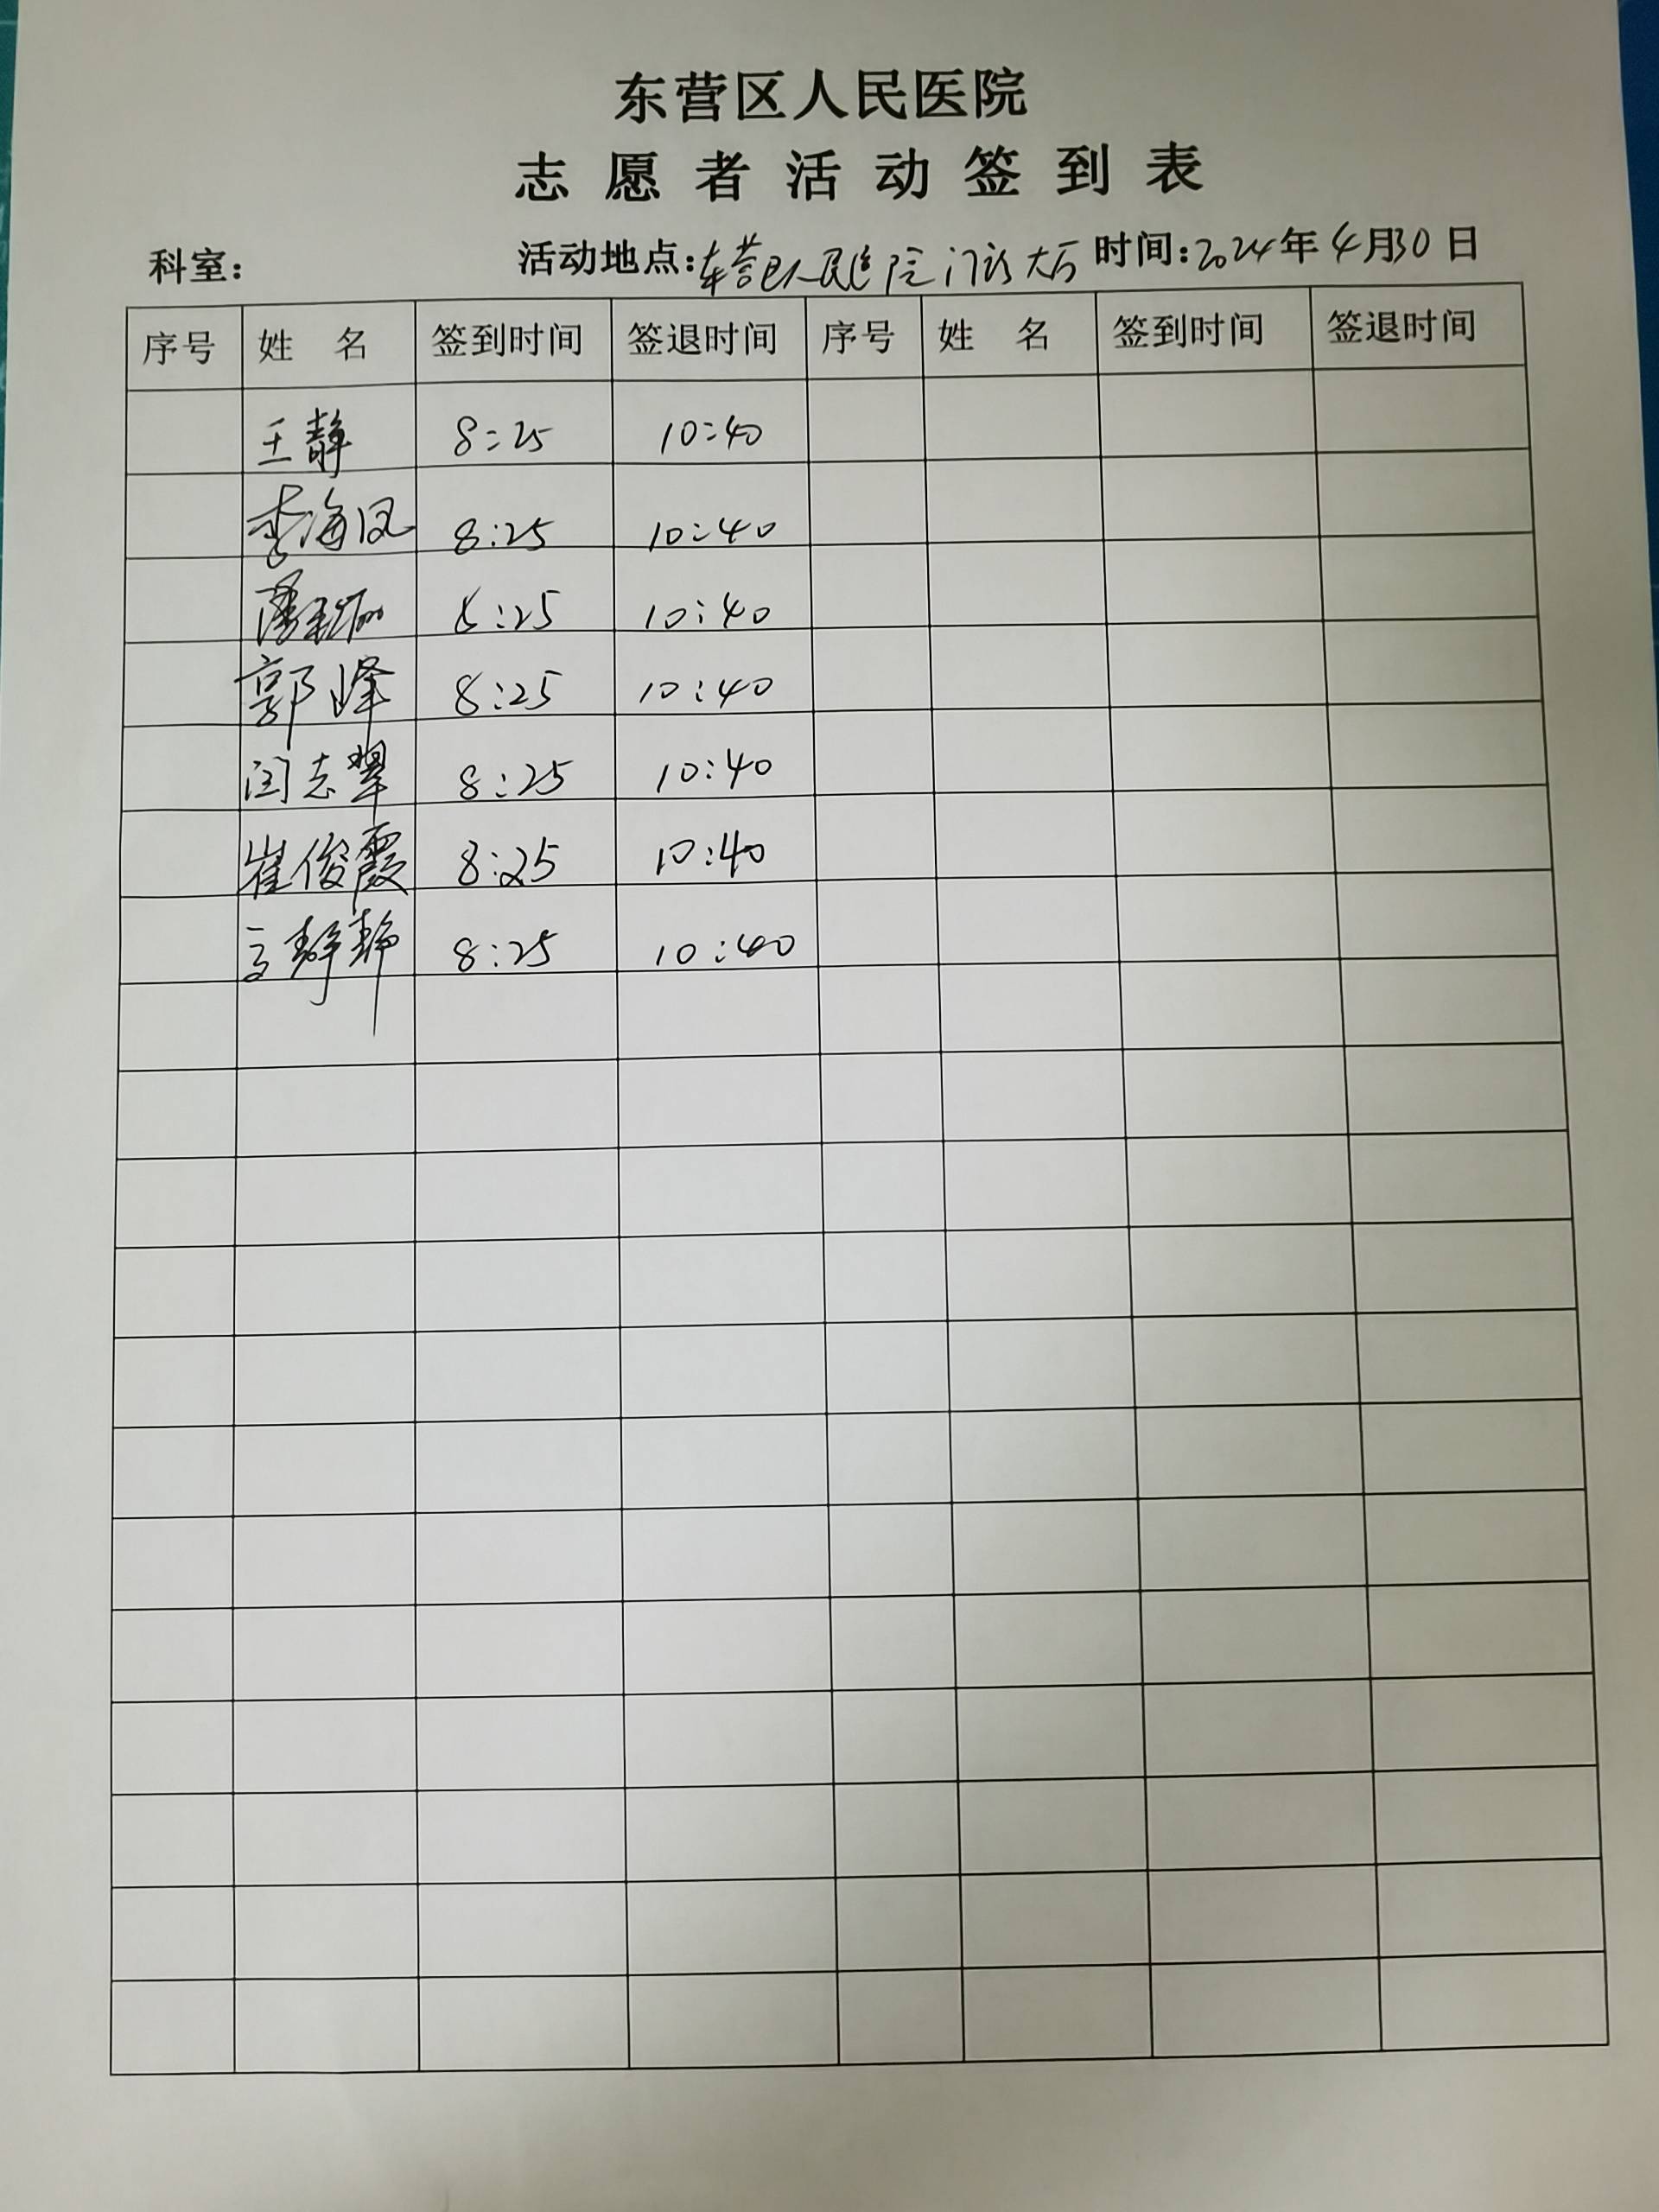 东营区人民医院
志愿者活动签到表
科室: 活动地点:东营区人民医院门诊大厅 时间:2024年4月30日
序号 姓 名 签到时间 签退时间 序号 姓 名 签到时间 签退时间
王静 8:25 10:40
李海凤 8:25 10:40
8:25 10:40
郭峰 8:25 10:40
闫志翠 8:25 10:40
崔俊霞 8:25 10:40
高静静 8:25 10:40